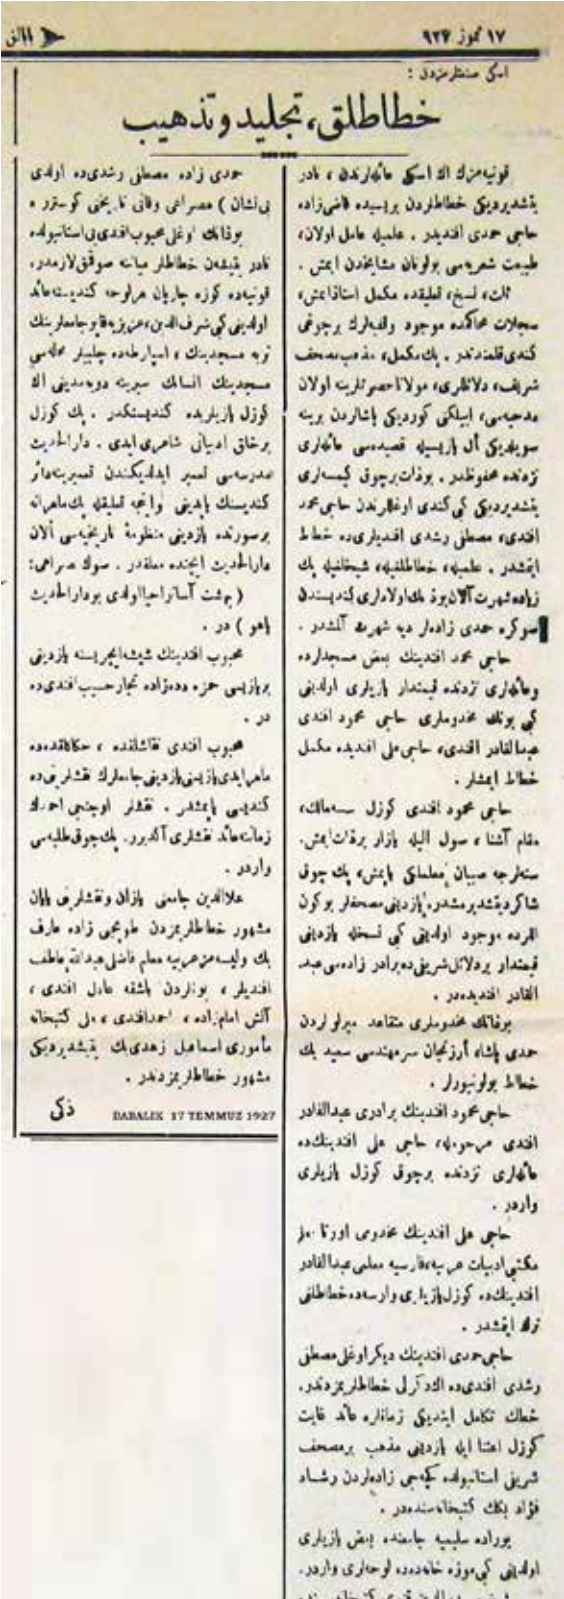 ١٧ تموز ٩٢٧
بالق
اسكی صنعتلرمزدن :
خطاطلق، تجليد و تذهيب
قونيه‌مزك اك اسكی عائله‌لرندن ، نادر
يتشديرديكی خطاطلردن بريسی‌ده قاضی‌زاده
حاجی حمدی افنديدر . علميله عامل اولان،
طبيعت شعريه‌سی بولونان مشايخدن ايمش .
ثلث، نسخ، تعليقده مكمل استاذ ايمش،
سجلات محاكمده موجود وقفيه‌لرك برچوغی
كندی قلمندندر . پك مكمل، مذهب مصحف
شريف، دلائللری، مولانا حضرتلرينه اولان
مدحيه‌سی، ايپلكی كورديكی پاشالردن برينه
سويلديكی أل يازيسيله قصيده‌سی عائله‌لری
نزدنده محفوظدر . بوذات برچوق كيمسه‌لری
يتشديرديكی كبی كندی اوغللرندن حاجی محمود
افندی، مصطفی رشدی افنديلری‌ده خطاط
ايتمشدر . علميله، خطاطلغيله، شيخلغيله پك
زياده شهرت آلان بوذاتك اولادلری كنديسندن
صوكره حمدی زاده‌لر ديه شهرت آلمشدر .
حاجی محمود افندينك بعض مسجدلرده
وعائله‌لری نزدنده قيمتدار يازيلری اولديغی
كبی بونك مخدوملری حاجی محمود افندی
عبدالقادر افندی، حاجی علی افندی‌ده مكمل
خطاط ايمشلر .
حاجی محمود افندی كوزل سسه مالك،
مقام آشنا ، صول اليله يازار برذات ايمش.
سنه‌لرجه صبيان معلملكی ياپمش، پك چوق
شاكرد يتشديرمشدر. يازديغی مصحفلر بوكون
اللرده موجود اولديغی كبی نسخله يازديغی
قيمتدار بردلائل شريفی‌ده برادر زاده‌سی عبد
القادر افنديده‌در .
بو ذاتك مخدوملری متقاعد ميرلوالردن
حمدی پاشا، أرزنجان سرمهندسی سعيد بك
خطاط بولونيورلر .
حاجی محمود افندينك برادری عبدالقادر
افندی مرحومله، حاجی علی افندينك‌ده
عائله‌لری نزدنده برچوق كوزل يازيلری
واردر .
حاجی علی افندينك مخدومی اورتا
مكتبی ادبيات عربيه، فارسيه معلمی عبدالقادر
افندينك‌ده كوزل يازيلری وارسه‌ده خطاطلغی
ترك ايتمشدر .
حاجی حمدی افندينك ديكر اوغلی مصطفی
رشدی افندی‌ده اك دكرلی خطاطلريمزدندر.
خطك تكامل ايتديكی زمانلره عائد غايت
كوزل اعتنا ايله يازديغی مذهب برمصحف
شريفی استانبولده كچه‌جی زاده‌لردن رشاد
فؤاد بكك كتبخانه‌سنده‌در .
بوراده سليميه جامعنده بعض يازيلری
اولديغی كبی موزه خانه‌ده‌ده لوحه‌لری واردر.
حمدی زاده مصطفی رشدی‌ده اولدی
بی‌نشان ) مصراعی وفاتی تاريخنی كوسترر ه
بوذاتك اوغلی محبوب افندی‌يی استانبولده
نادر يتيشن خطاطلر ميانه صوقمق لازمدر.
قونيه‌ده كوزه چارپان هر لوحه كنديسنه عائد
اولديغی كبی شرف الدين، عزيزيه، قاپو جامعلرينك
تربه مسجدينك ، اسپارطه‌ده چلبيلر محله‌سی
مسجدينك انسانك سيرينه دويمديغی اك
كوزل يازيلری‌ده كندیسنكدر . پك كوزل
برخلق ادبياتی شاعری ايدی . دارالحديث
مدرسه‌سی تعمير ايدلديكندن تعميرينه دائر
كندیسنك ياپديغی واينجه تعليقله پك ماهرانه
برصورتده يازديغی منظومهٔ تاريخيه‌سی ألان
دارالحديث ايچنده معلقدر . صوك مصراعی:
( بهشت آسا تر احيا اولدی بو دارالحديث
ياهو ) در .
محبوب افندينك شيشه ايچريسنه يازديغی
بريازيسی حمزه دده‌زاده تجار حسيب افندی‌ده
در .
محبوب افندی نقاشلقده ، حكاكلقده‌ده
ماهر ايدی يازيسنی يازديغی جامعلرك نقشلرينی‌ده
كندیسی ياپمشدر . نقشلر اوچنجی احمدك
زماننه عائد نقشلری آكديرر. پك چوق طلبه‌سی
واردر .
علاالدين جامعنی يازان ونقشلرينی ياپان
مشهور خطاطلريمزدن طوپجی زاده عارف
بك وليسه‌مز عربيه معلم فاضلی عبدالله عاطف
افنديلر ، بونلردن باشقه عادل افندی ،
آلتش امام‌زاده ، احمد افندی ، ملی كتبخانه
مأموری اسماعيل زهدی بك يتيشديرديكی
مشهور خطاطلريمزدندر .
ذكی
DABALIK 17 TEMMUZ 1927